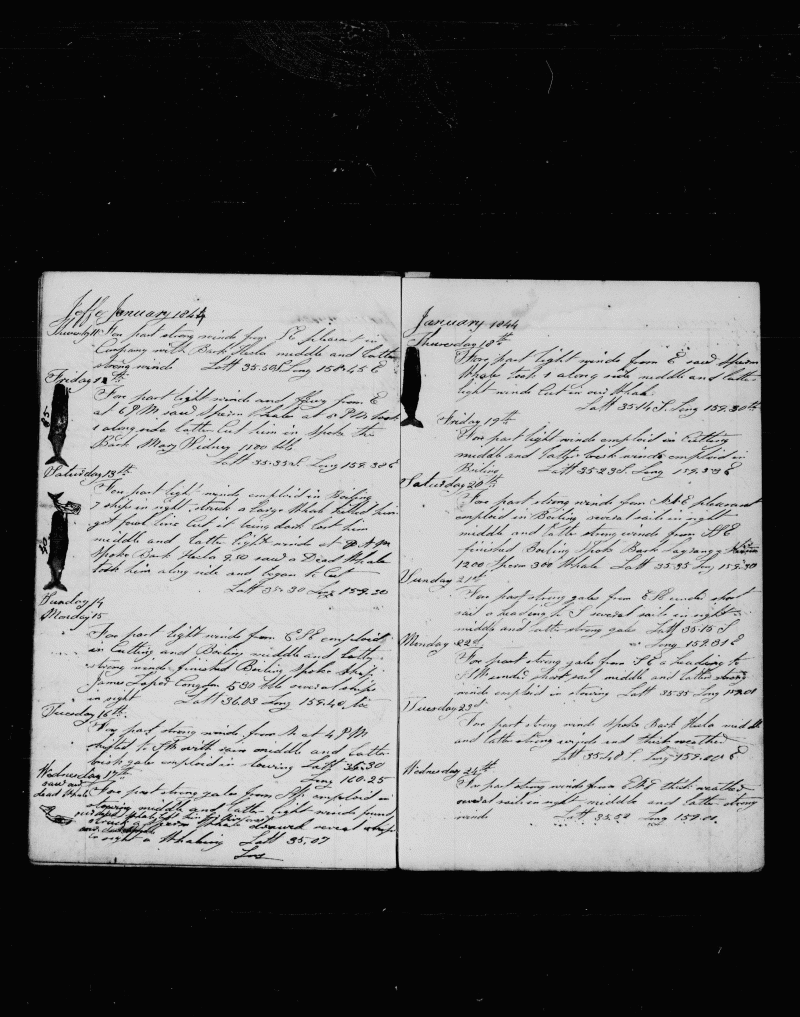 January 1844
Thursday 11 Fore part strong winds from SE pleasant in
Company with Bark Hecla middle and latter
strong winds Latt 35.50 S Long 158.45 E
Friday 12th
Fore part light winds and from E
at 6 P.M. saw Sperm Whale at P.M. took
1 along side latter Cut him in Spoke the
Bark Mary 1100 bbls
Latt 35.33 S Long 159.30 E
85
Saturday 13th
Fore part light winds employd in Boiling
7 ship in sight struck a large Whale killed him
got foul line Cut it being dark lost him
middle and latter light winds at A M
Spoke Bark Hecla saw a Dead Whale
took him along side and began to Cut
Latt 35.30 Long 159.20
40
Sunday 14
Monday 15
Fore part light winds from ESE employd
in Cutting and Boiling middle and latter
strong winds finished Boiling Spoke Ship
James Congdon 580 bbls several ships
in sight Latt 36.03 Long 159.40
Tuesday 16th
Fore part strong winds from N at 4 P M
shifted to SW with rain middle and latter
fresh gale employd in stowing Latt 36.30
Long 160.25
Wednesday 17th
saw
dead Whale
Fore part strong gales from employd in
stowing middle and latter light winds found
struck a Sperm Whale several ships
in sight a Whaling Latt 35.07
Lon
January 1844
Thursday 18th
Fore part light winds from E saw Sperm
Whale took 1 along side middle and latter
light winds Cut in our Whale
Latt 35.14 S. Long 159.30
Friday 19th
Fore part light winds employd in Cutting
middle and latter fresh winds employd in
Boiling Latt 35.23 S. Long 159.33 E
Saturday 20th
Fore part strong winds from NNE pleasant
employd in Boiling several sails in sight
middle and latter strong winds from SSE
finished Boiling Spoke Bark Lagrange
1200 Sperm 300 Whale Latt 35.35 Long 159.30
Sunday 21st
Fore part strong gales from ESE under short
sail a heading to S several sails in sight
middle and latter strong gales Latt 35.15 S
Long 159.31 E
Monday 22d
Fore part strong gales from SE a heading to
SSW under short sail middle and latter strong
winds employd in stowing Latt 35.35 Long 159.01
Tuesday 23d
Fore part strong winds Spoke Bark Hecla middle
and latter strong winds and thick weather
Latt 35.48 S. Long 159.00 E
Wednesday 24th
Fore part strong winds from ENE thick weather
several sails in sight middle and latter strong
winds Latt 35.54 Long 159.01